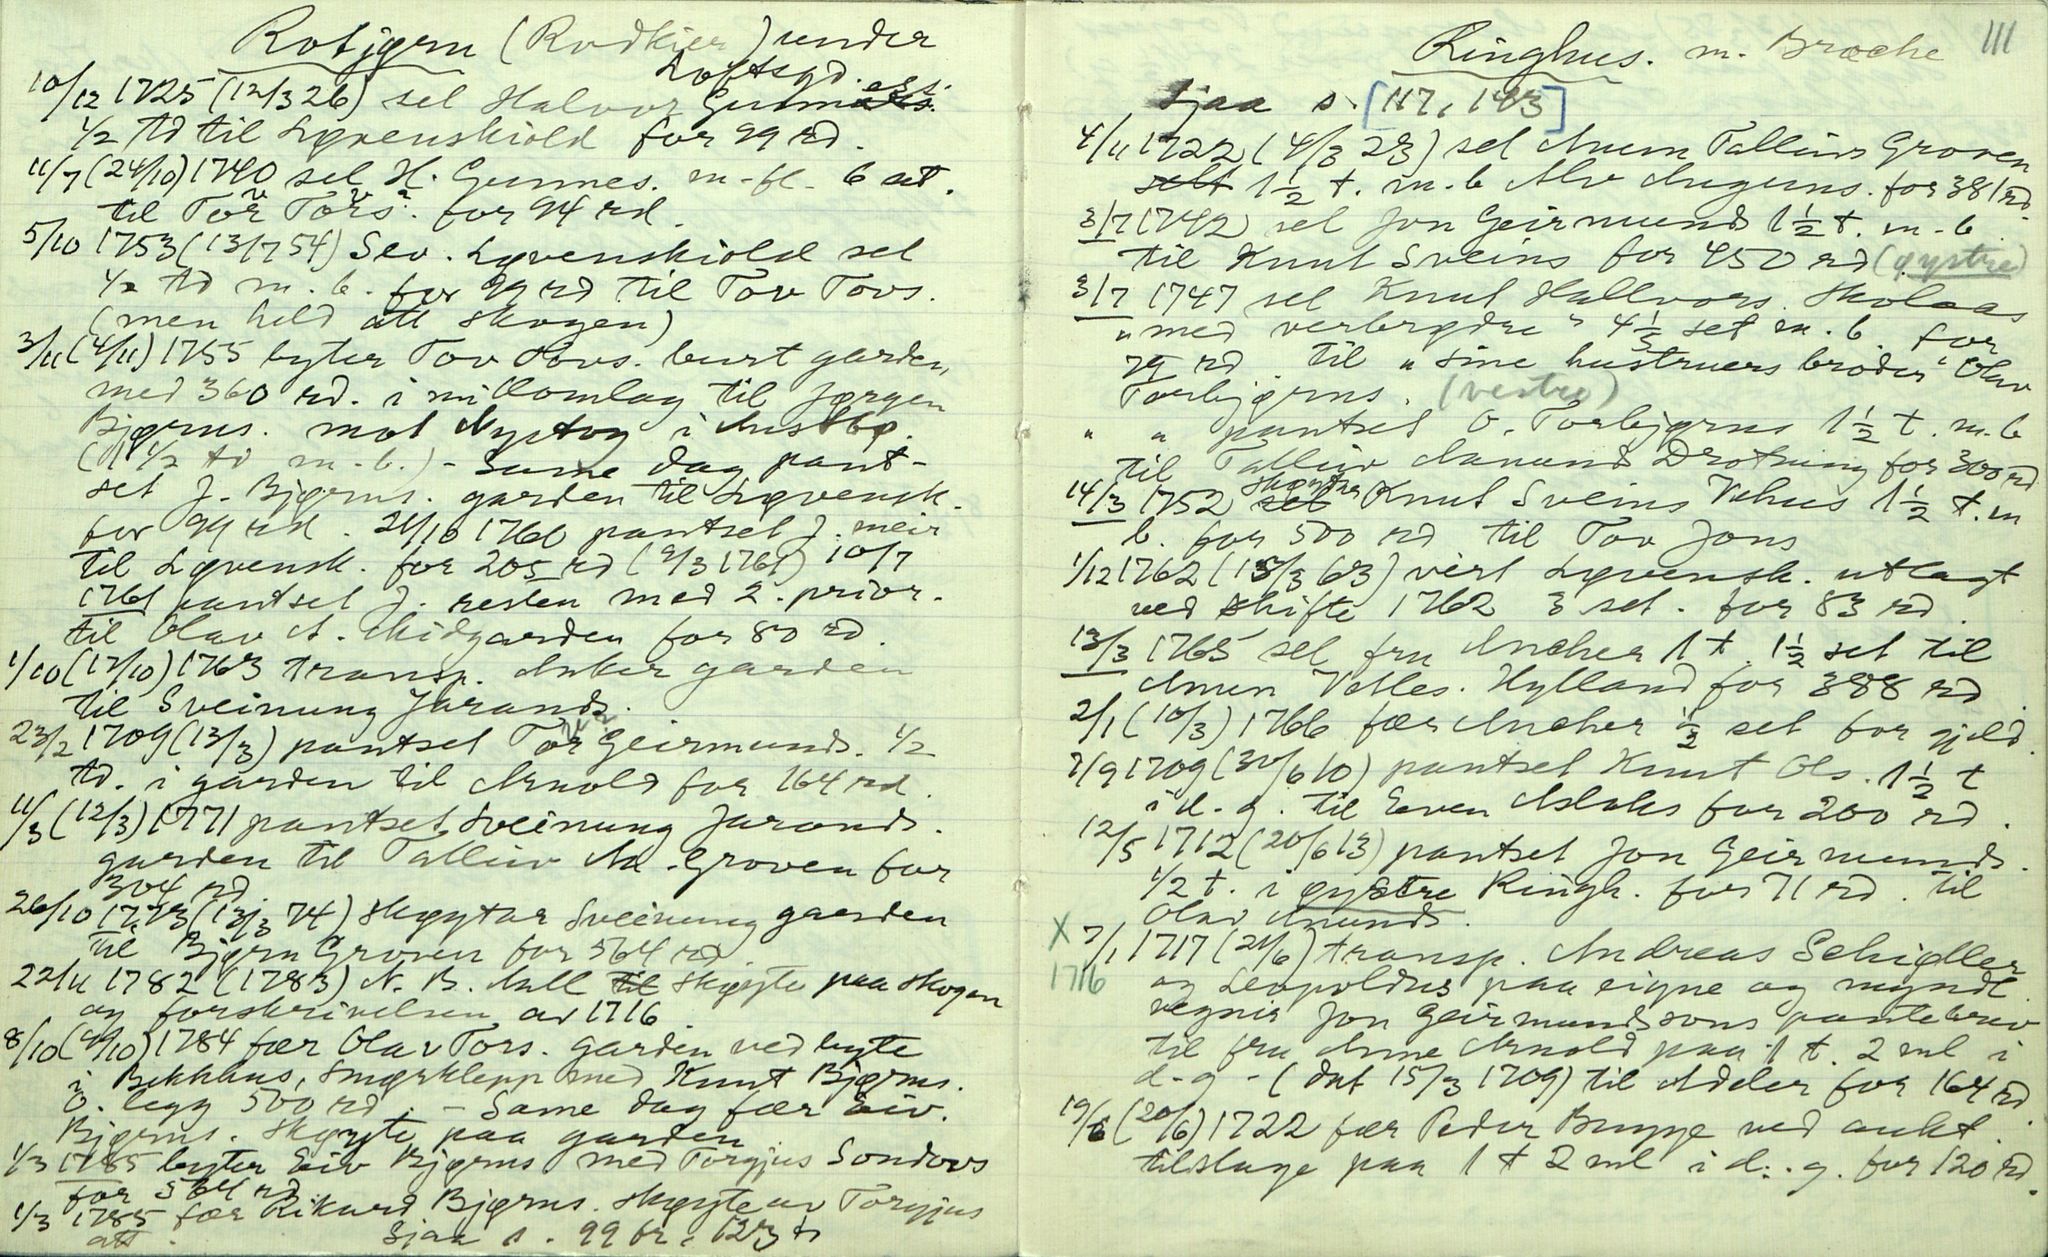 Rotjørn (Rodkier) under
Loftsgd.
10/12 1725 (12/3 26) sel Halvor Gunness.
1/2 td til Løvenskiold for 99 rd.
11/7 (24/10) 1740 sel H. Gunnes. m-fl. 6 set.
til Tov Tovs. for 94 rd.
5/10 1753 (13/7 54) Sev. Løvenskiold sel
1/2 td m. b. for 99 rd til Tov Tovs.
(men held att skogen)
3/11 (4/11) 1755 byter Tov Tovs. burt garden
med 360 rd. i millomlag til Jørgen
Bjørns. mot Nystog i Austbø.
(1 1/2 td m-b.) - Same dag pant-
set J. Bjørns. garden til Løvensk.
for 99 rd. 21/10 1760 pantset J. meir
til Løvensk. for 205 rd (9/3 1761) 10/7
1761 pantset J. resten med 2. prior.
til Olav A. Midgarden for 80 rd.
1/10 (17/10) 1763 transp. Anker garden
til Sveinung Jarands.
23/2 1709 (13/3) pantset Tov Geirmunds. 1/2
td. i garden til Arnold for 164 rd.
11/3 (12/3) 1771 pantset Sveinung Jarands.
garden til Talleiv Aa. Groven for
304 rd.
26/10 1773 (13/3 74) skøytar Sveinung garden
til Bjørn Groven for 564 rd.
22/11 1782 (1783) N. B. Aall til skøyte paa skogen
og forskrivelsen av 1716.
8/10 (9/10) 1784 fær Olav Tors. garden ved byte
i Bekkhus, Smørklepp med Knut Bjørns.
O. legg 500 rd. - Same dag fær Eiv.
Bjørns. skøyte paa garden
1/3 1785 byter Eiv Bjørns med Torgjus Sondovs
for 564 rd.
1/3 1785 fær Rikard Bjørns. skøyte av Torgjus
att. Sjaa s. 99 br. 123 b
Ringhus. m. Bræche 111
Sjaa s. [117, 143]
4/11 1722 (4/3 23) sel Anen Tallivs Groven
selt 1 1/2 t. m. b Alv Auguns. for 381 rd.
3/7 1742 sel Jon Geirmunds 1 1/2 t. m-b
til Knut Sveins for 450 rd (øystre)
3/7 1747 sel Knut Hallvors. Skolaas
"med verbrødre" 4 1/2 set m. b. for
79 rd. til "sine hustruers broder" Olav
Torbjørns. (vestre)
" " pantset O. Torbjørns 1 1/2 t. m. b
til Talleiv Aanunds Drotning for 300 rd
14/3 1752 sel skøyter Knut Sveins Vehus 1 1/2 t. m
b. for 500 rd til Tov Jons
1/12 1762 (15/3 63) vert Løvensk. utlagt
ved skifte 1762 3 set. for 83 rd.
13/3 1765 sel fru Ancher 1 t. 1 1/2 set til
Anen Valles. Hylland for 388 rd
2/1 (10/3) 1766 fær Ancher 1/2 set for gjeld.
7/9 1709 (30/6 10) pantset Knut Ols. 1 1/2 t
i d. g. til Even Aslaks for 200 rd.
12/5 1712 (20/6 13) pantset Jon Geirmunds.
1/2 t. i øystre Ringh. for 71 rd. til
Olav Amunds.
X 7/1 1717 (21/6) transp. Andreas Schiøller
1716 og Leopoldus paa eigne og myndl.
vegnir Jon Geirmundssons pantebrev
til fru Anne Arnold paa 1 t. 2 ml i
d-g - (dat 15/3 1709) til Adeler for 164 rd.
19/6 (20/6) 1722 fær Peder Bugge ved aukt.
tilslage paa 1 t 2 ml i d. g. for 120 rd.